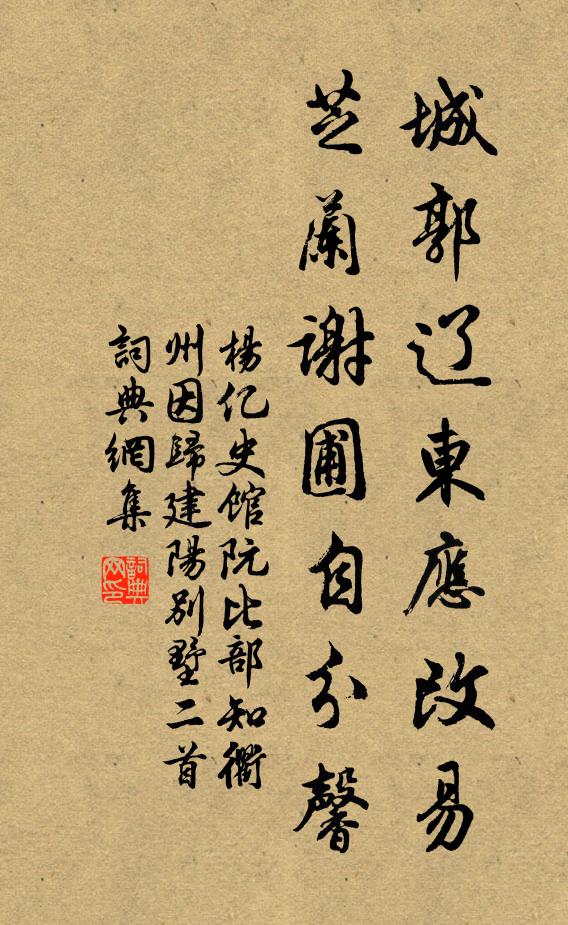 城郭辽東應改易
芝蘭謝圃自分馨
楊亿史館阮比部知衢
州因歸建陽別墅二首
詞典網集
詞典
网印